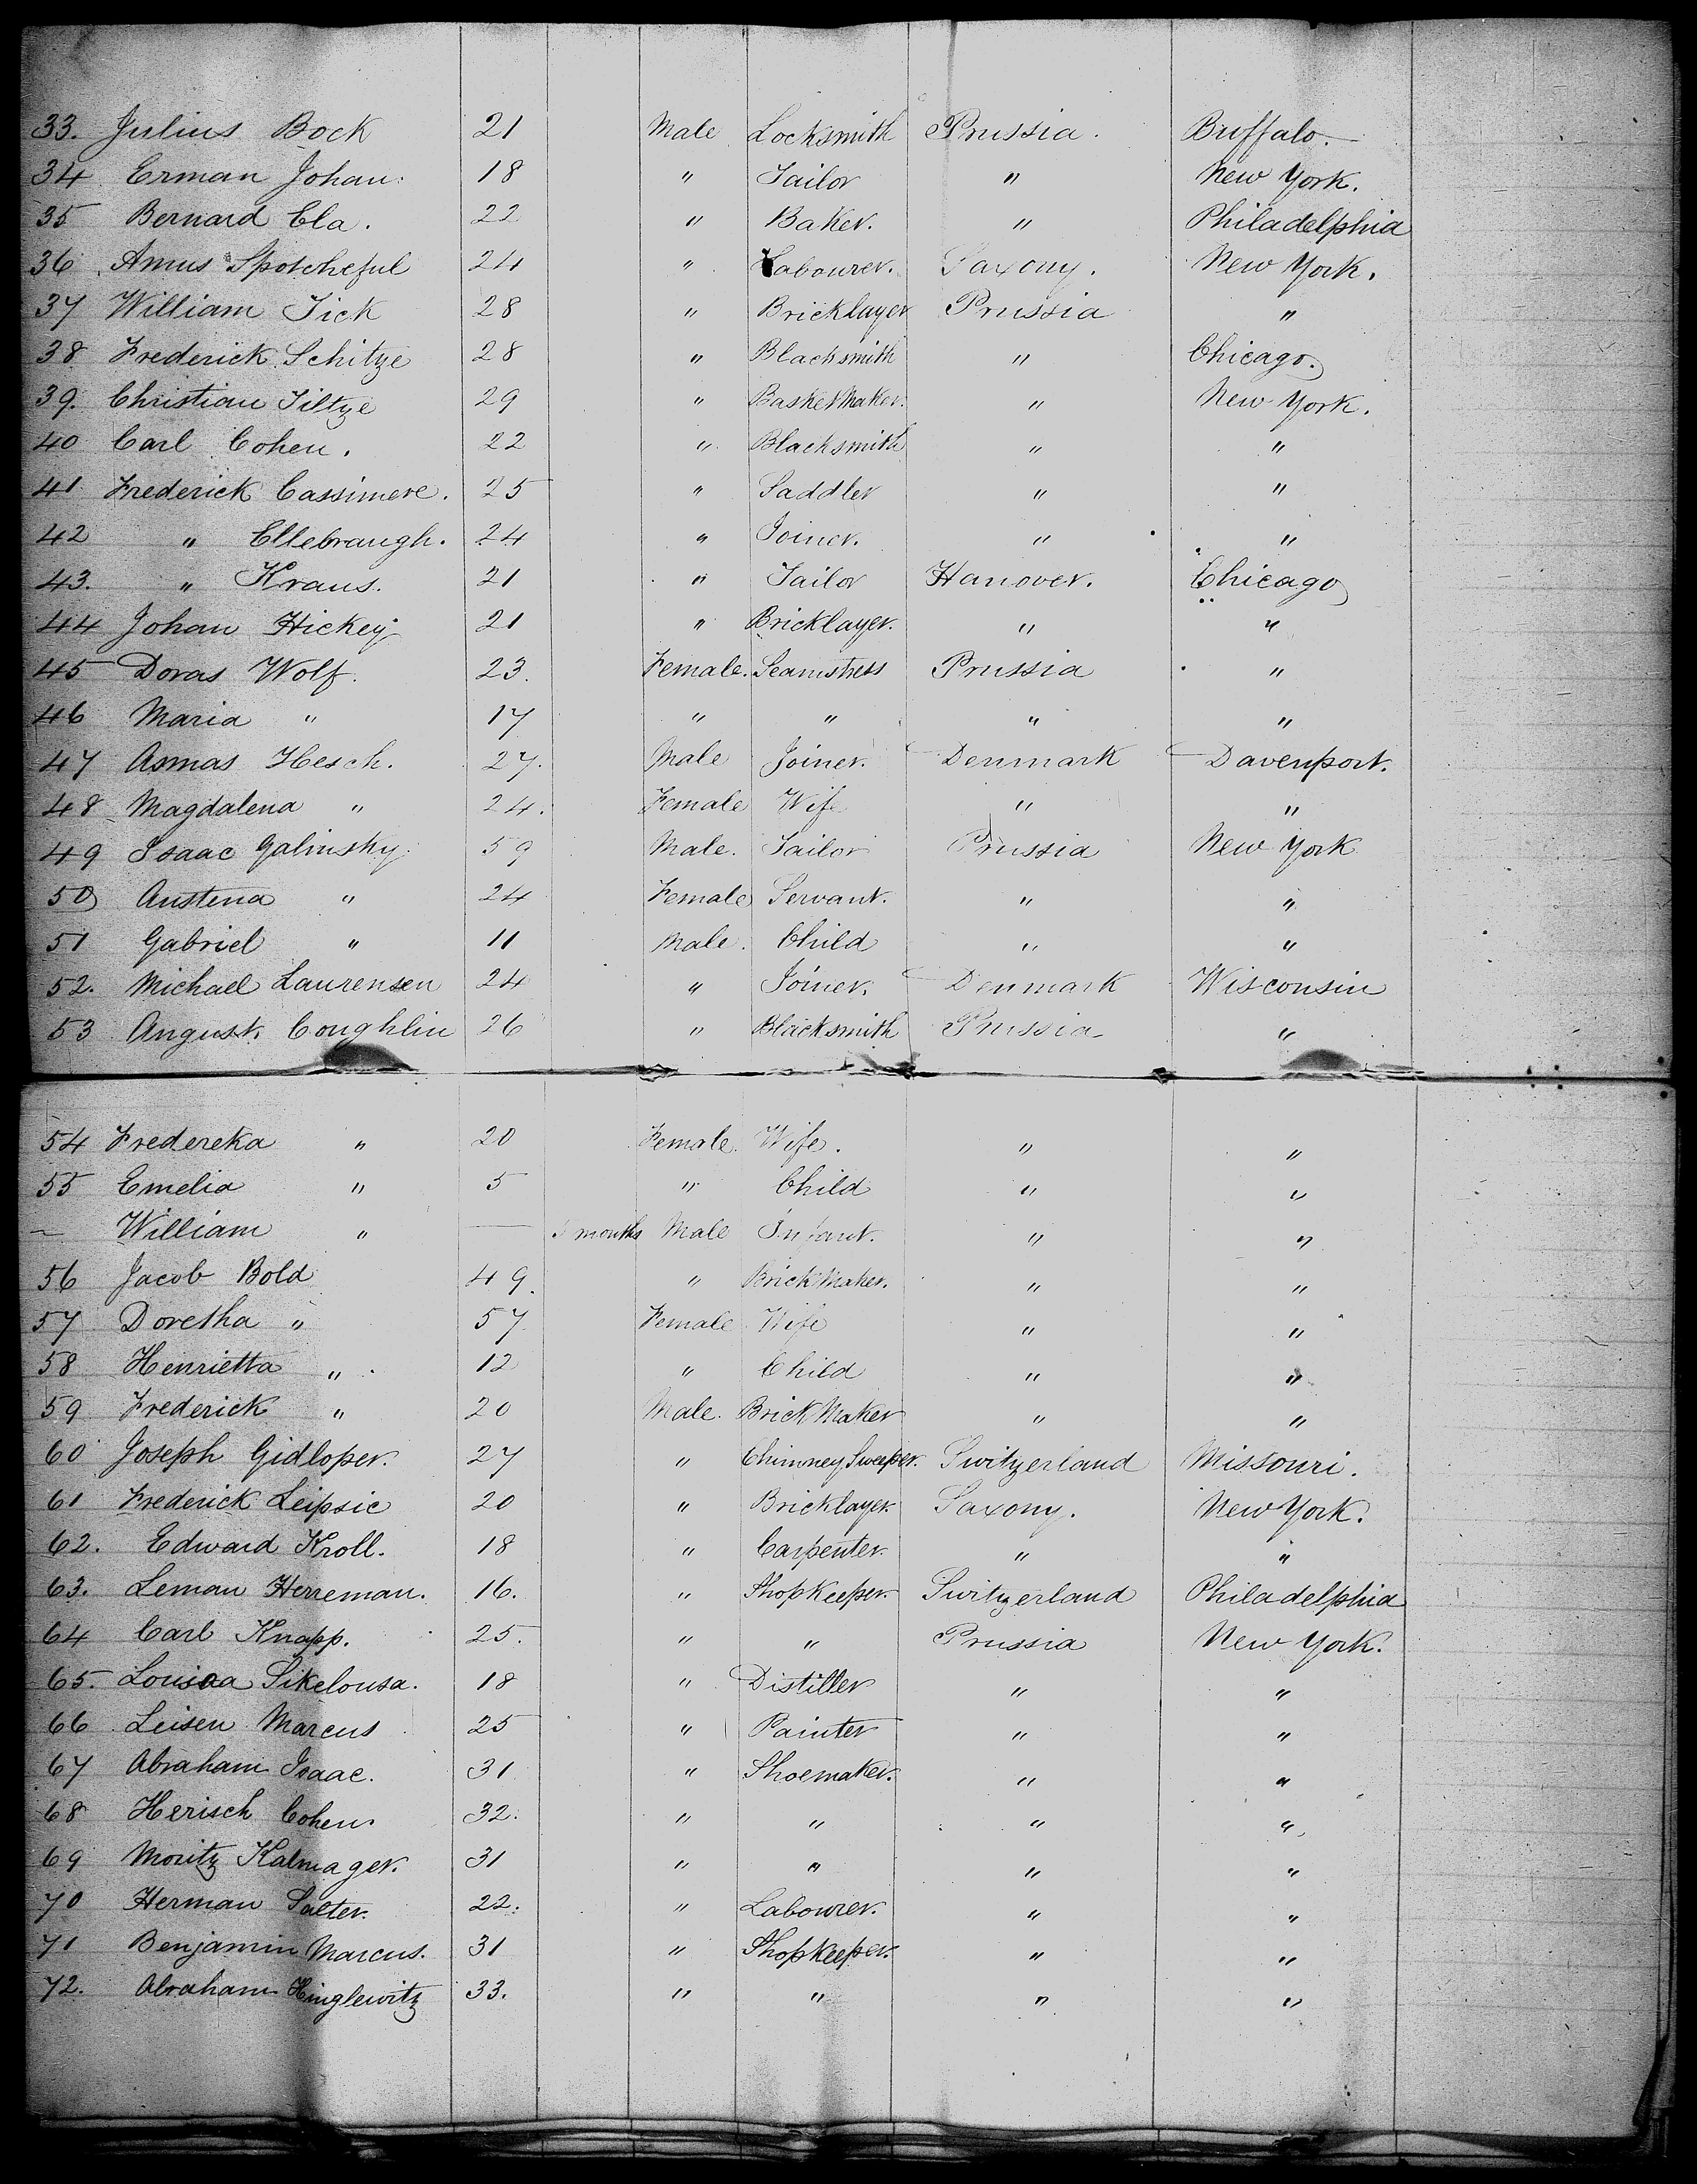 33. Julius Bock 21 Male Locksmith Prussia. Buffalo.
34 Erman Johan: 18 " Tailor " New York.
35 Bernard Cla. 22 " Baker. " Philadelphia
36 Amus Spotcheful 24 " Labourer. Saxony. New York.
37 William Tick 28 " Bricklayer Prussia "
38 Frederick Schitze 28 " Blacksmith " Chicago.
39. Christian Tiltze 29 " Basket Maker. " New York.
40 Carl Cohen. 22 " Blacksmith " "
41 Frederick Cassimere. 25 " Saddler " "
42 " Ellebraugh. 24 " Joiner. " "
43. " Kraus. 21 " Tailor Hanover. Chicago
44 Johan Hickey 21 " Bricklayer. " "
45 Doras Wolf. 23. Female. Seamstress Prussia "
46 Maria " 17 " " " "
47 Asmas Hesch. 27. Male Joiner. Denmark Davenport.
48 Magdalena " 24. Female Wife " "
49 Isaac Galinsky. 59 Male. Tailor Prussia New York
50 Austena " 24 Female Servant. " "
51 Gabriel " 11 Male. Child " "
52. Michael Laurensen 24 " Joiner. Denmark Wisconsin
53 August. Coughlin 26 " Blacksmith Prussia "
54 Fredereka " 20 Female. Wife. " "
55 Emelia " 5 " Child " "
— William " — months Male Infant. " "
56 Jacob Bold 49. " Brick Maker. " "
57 Doretha " 57 Female Wife " "
58 Henrietta " 12 " Child " "
59 Frederick " 20 Male. Brick Maker " "
60 Joseph Gidloper. 27 " Chimney Sweeper. Switzerland Missouri.
61 Frederick Leipsic 20 " Bricklayer. Saxony. New York.
62. Edward Kroll. 18 " Carpenter. " "
63. Leman Herreman. 16. " Shopkeeper. Switzerland Philadelphia
64 Carl Knapp. 25. " " Prussia New York.
65. Louisaa Sikelousa. 18 " Distiller " "
66 Leisen Marcus 25 " Painter " "
67 Abraham Isaac. 31 " Shoemaker. " "
68 Herisch Cohen. 32. " " " "
69 Moritz Kalmager. 31 " " " "
70 Herman Salter. 22. " Labourer. " "
71 Benjamin Marcus. 31 " Shopkeeper. " "
72. Abraham Hinglewitz 33. " " " "